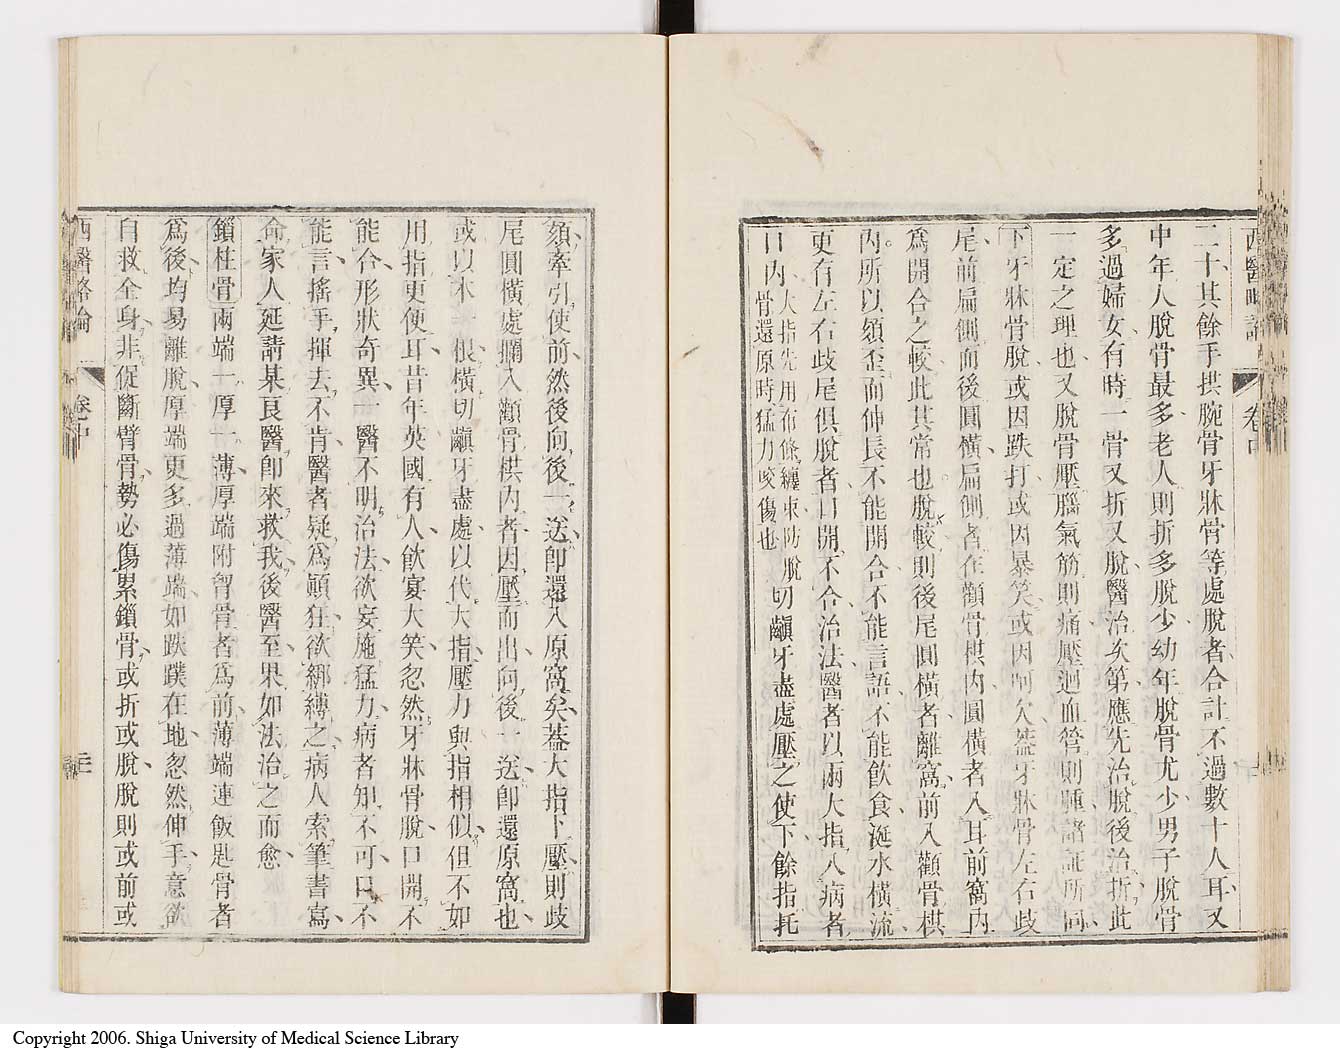 西醫略論 卷中
二十其餘手拱腕骨牙牀骨等處脫者合計不過數十人耳又
中年人脫骨最多老人則折多脫少幼年脫骨尤少男子脫骨
多過婦女有時一骨又折又脫醫治次第應先治脫後治折此
一定之理也又脫骨壓腦氣筋則痛壓迴血管則腫諸証所同
下牙牀骨脫或因跌打或因暴笑或因呵欠葢牙牀骨左右歧
尾前扁側而後圓橫扁側者在顴骨栱內圓橫者入耳前窩內
爲開合之較此其常也脫較則後尾圓橫者離窩前入顴骨栱
內所以頦歪而伸長不能開合不能言語不能飲食涎水橫流
更有左右歧尾俱脫者口開不合治法醫者以兩大指入病者
口內大指先用布條纏束防脫骨還原時猛力咬傷也切齻牙盡處壓之使下餘指托
頦牽引使前然後向後一送卽還入原窩矣葢大指下壓則歧
尾圓橫處擱入顴骨栱內者因壓而出向後一送卽還原窩也
或以木一根橫切齻牙盡處以代大指壓力與指相似但不如
用指更便耳昔年英國有人飲宴大笑忽然牙牀骨脫口開不
能合形狀奇異一醫不明治法欲妄施猛力病者知不可口不
能言搖手揮去不肯醫者疑爲顚狂欲綁縛之病人索筆書寫
命家人延請某良醫卽來救我後醫至果如法治之而愈
鎖柱骨兩端一厚一薄厚端附胷骨者爲前薄端連飯匙骨者
爲後均易離脫厚端更多過薄端如跌蹼在地忽然伸手意欲
自救全身非促斷臂骨勢必傷累鎖骨或折或脫脫則或前或
西醫略論 卷中 二十二
Copyright 2006. Shiga University of Medical Science Library